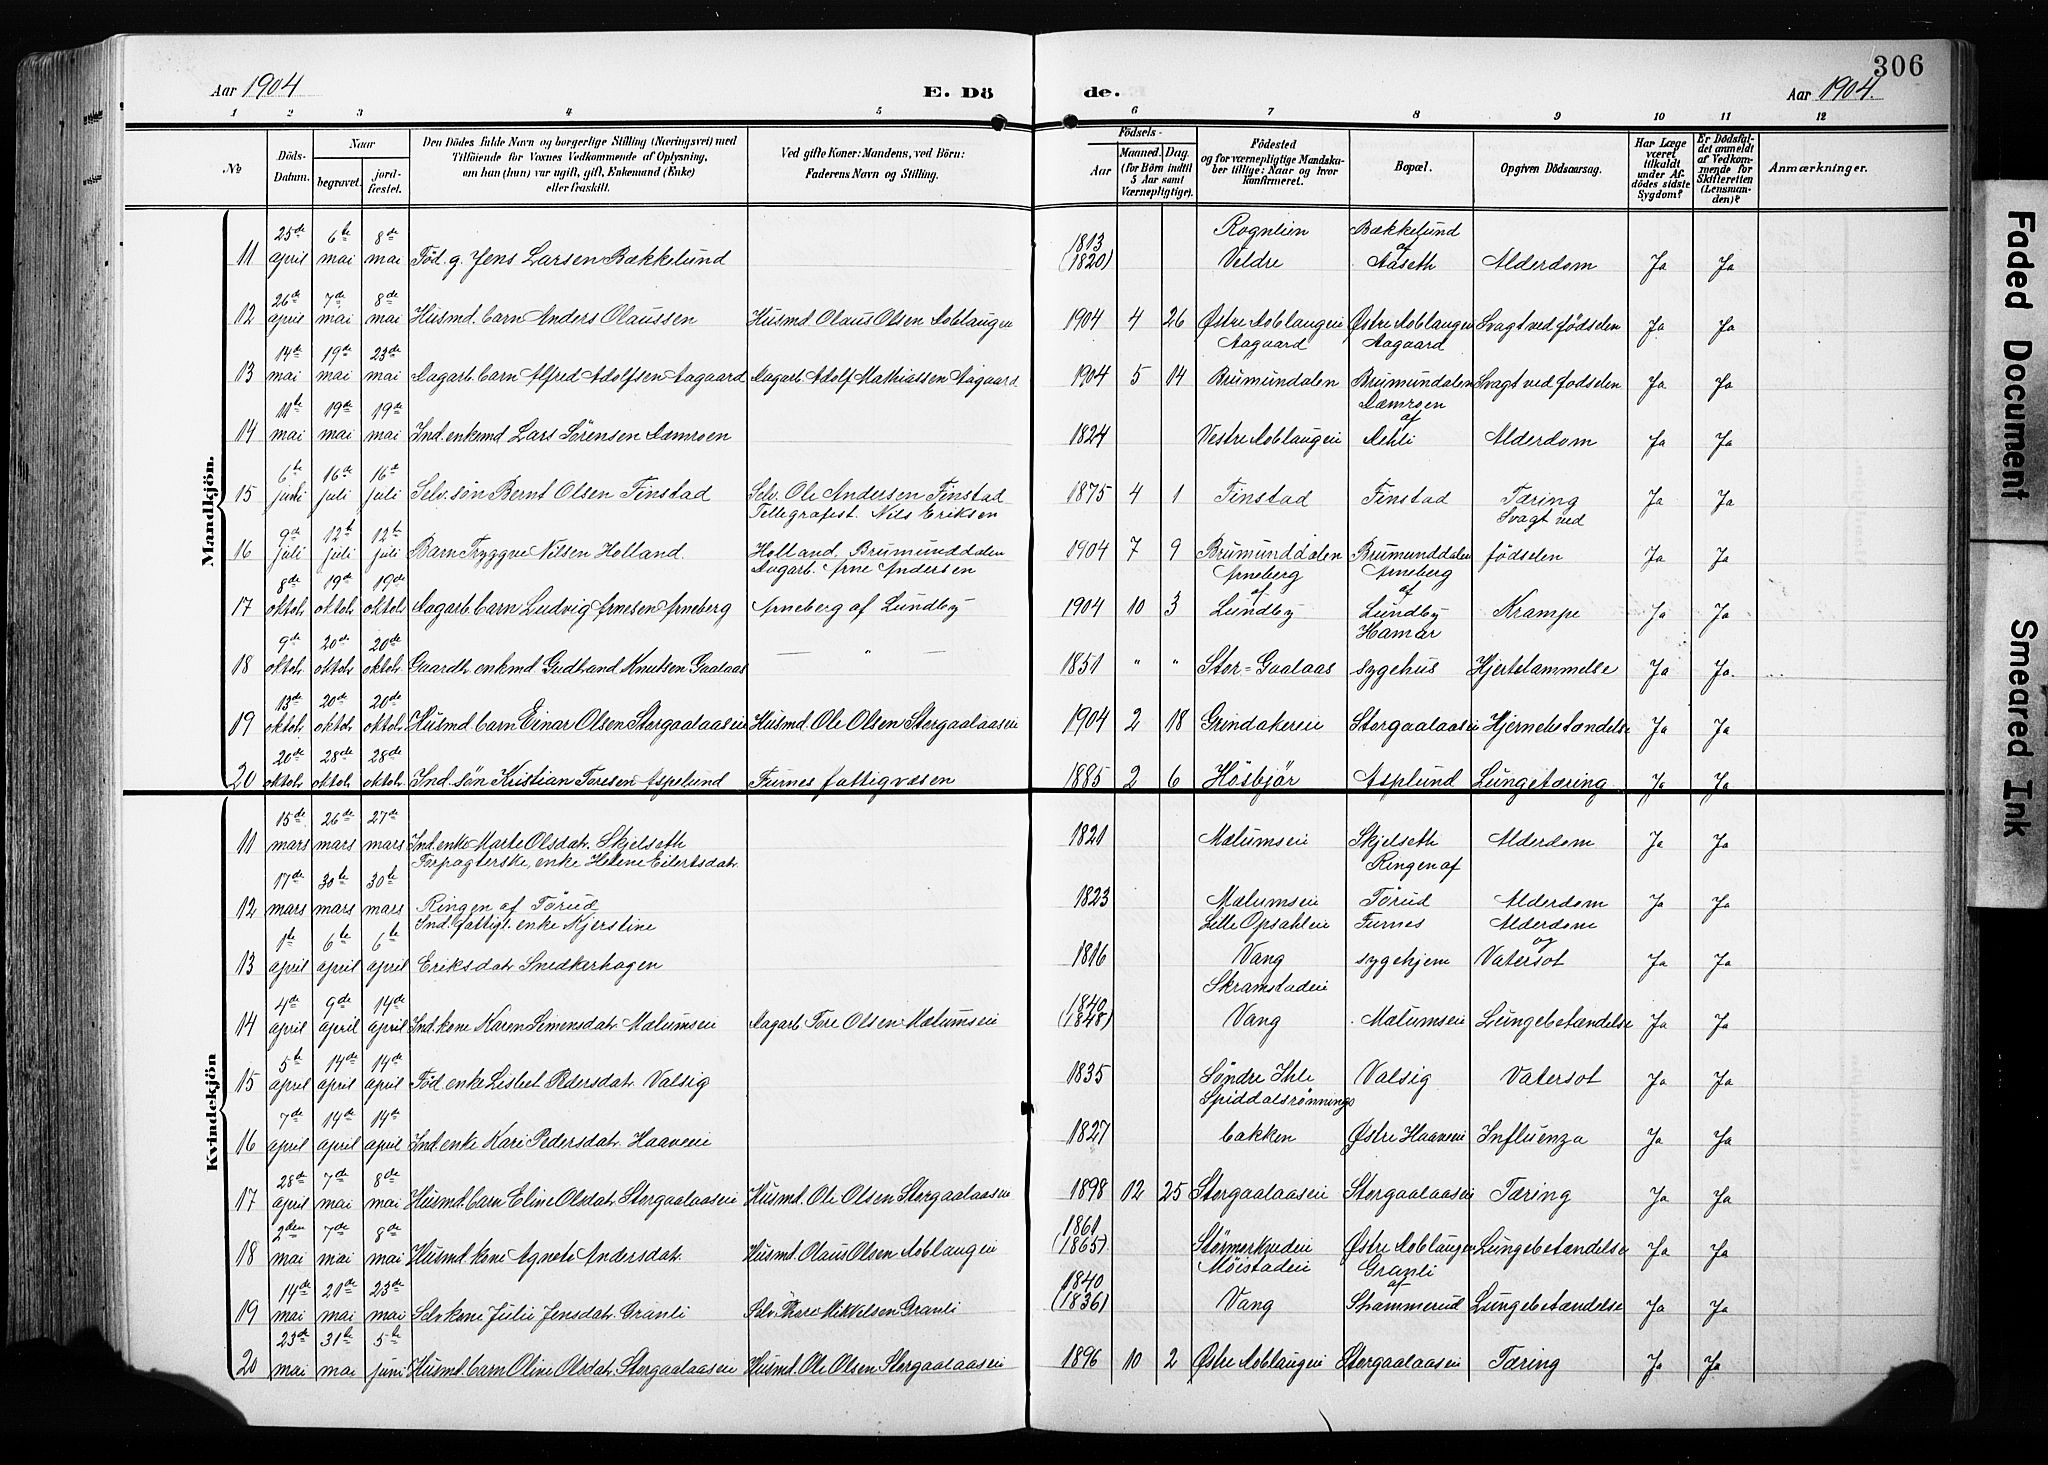 306
Aar 1904 E. Dö
de. Aar 1904.
1 2 3 4 5 6 7 8 9 10 11 12
No Döds-Datum. Naar begravet. jord-fæstet. Den Dödes fulde Navn og borgerlige Stilling (Næringsvei) med Tilföiende for Voxnes Vedkommende af Oplysning, om han (hun) var ugift, gift, Enkemand (Enke) eller fraskilt. Ved gifte Koner: Mandens, ved Börn: Faderens Navn og Stilling. Födsels- Aar Maaned. Dag. (for Börn indtil 5 Aar samt Værnepligtige). Födested og for værnepligtige Mandskaber tillige: Naar og hvor Konfirmeret. Bopæl. Opgiven Dödsaarsag. Har Læge været tilkaldt under Afdödes sidste Sygdom? Er Dödsfaldet anmeldt af Vedkommende for Skifteretten (Lensmanden)? Anmærkninger.
Mandkjön.
11 25de april 6te mai 8de mai Föd. g. Jens Larsen Bækkelund 1813 (1820) Rognlien Veldre Bækkelund af Aaseth Alderdom Ja Ja
12 26de april 7de mai 8de mai Husmd. barn Anders Olaussen Husmd. Olaus Olsen Aoblaugen 1904 4 26 Østre Aoblaugen Østre Aoblaugen Svagt ved födselen Ja Ja
13 14de mai 19de mai 23de mai Dagarb. barn Alfred Adolfsen Aagaard Dagarb. Adolf Mathiassen Aagaard 1904 5 14 Aagaard Brumundalen Aagaard Brumundalen Svagt ved födselen Ja Ja
14 11te mai 19de mai 19de mai Ind. enkmd Lars Sörensen Dæmroen 1824 Vestre Aoblaugen Dæmroen af Aehli Alderdom Ja Ja
15 6te juni 16de juli 16de juli Selv. sön Bernt Olsen Finstad Selv. Ole Andersen Finstad 1875 4 1 Finstad Finstad Tæring Ja Ja
16 9de juli 12te juli 12te juli Barn Tryggve Nilsen Holland. Tellegrafist. Nils Eriksen Holland, Brumunddalen 1904 7 9 Brumunddalen Brumunddalen Svagt ved födselen Ja Ja
17 8de oktob. 19de oktob. 19de oktob. Dagarb. barn Ludvig Arnesen Arneberg Dagarb. Arne Andersen Arneberg af Lundby 1904 10 3 Arneberg af Lundby Arneberg af Lundby Krampe Ja Ja
18 9de oktob. 20de oktob. 20de oktob. Gaardbr. enkmd. Gudbrand Knutsen Gaalaas — " — 1851 " " Stor-Gaalaas Hamar sygehus Hjertelammelse Ja Ja.
19 13de oktob. 20de oktob. 20de oktob. Husmd. barn Einar Olsen Storgaalaaseie Husmd. Ole Olsen Storgaalaaseie 1904 2 18 Grindakereie Storgaalaaseie Hjernebetændelse Ja Ja
20 20de oktob. 28de oktob. 28de oktob. Ind. sön Kristian Toresen Aspelund Furnes fattigvæsen 1885 2 6 Hösbjör Asplund Lungetæring Ja Ja
Kvindekjön
11 15de mars 26de mars 27de mars Ind. enke Marte Olsdatr. Skjelseth 1821 Mælumseie Skjelseth Alderdom Ja Ja
12 17de mars 30te mars 30te mars Forpagterske, enke Helene Eilertsdatr. Ringen af Törud 1823 Mælumseie Ringen af Törud Alderdom Ja Ja
13 1te april 6te april 6te april Ind. fattigl. enke Kjerstine Eriksdatr. Snedkerhagen 1816 Lille Opsahleie Vang Furnes sygehjem Alderdom og Vatersot Ja Ja
14 4de april 9de april 14de april Ind. kone Karen Simensdatr. Mælumseie Dagarb. Tore Olsen Mælumseie 1840 (1848) Skramstadeie Vang Mælumseie Lungebetændelse Ja Ja
15 5te april 14de april 14de april Föd. enke Lisbet Pedersdatr. Valsig 1835 Söndre Ihle Valsig Vatersot Ja Ja
16 7de april 14de april 14de april Ind. enke Kari Pedersdatr. Haaveeie 1827 Spiddalsrönningsbakken Østre Haaveeie Influenza Ja Ja
17 28de april 7de mai 8de mai Husmd. barn Eline Olsdatr. Storgaalaaseie Husmd. Ole Olsen Storgaalaaseie 1898 12 25 Storgaalaaseie Storgaalaaseie Tæring Ja Ja
18 2den mai 7de mai 8de mai Husmd. kone Agnete Andersdatr. Husmd. Olaus Olsen Aoblaugen 1861 (1865) Störmerkrudeie Østre Aoblaugen Lungebetændelse Ja Ja
19 14de mai 21de mai 23de mai Selv. kone Julie Jensdatr. Granli Selv. Thore Mikkelsen Granli 1840 (1836) Möistadeie Vang Granli af Skammerud Lungebetændelse Ja Ja
20 23de mai 31te mai 5te juni Husmd. barn Oline Olsdatr. Storgaalaaseie Husmd. Ole Olsen Storgaalaaseie 1896 10 2 Østre Aoblaugen Storgaalaaseie Tæring Ja Ja
Faded Document
Smeared Ink